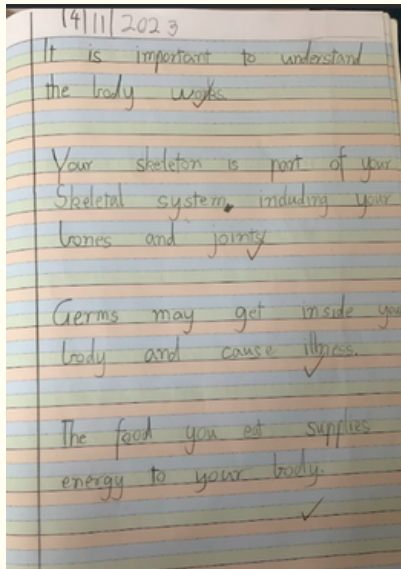 14/11/2023
It is important to understand
the body works.
Your skeleton is part of your
Skeletal system, including your
bones and joints
Germs may get inside you
body and cause illness.
The food you eat supplies
energy to your body.